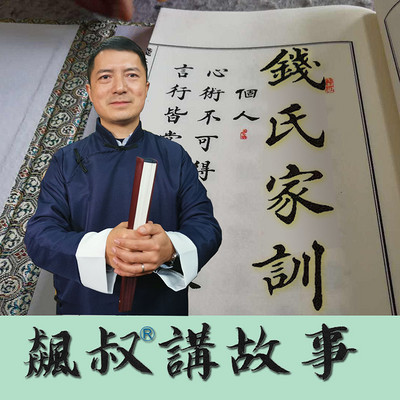 錢氏家訓
個人
心術不可得
言行皆
飆叔®講故事